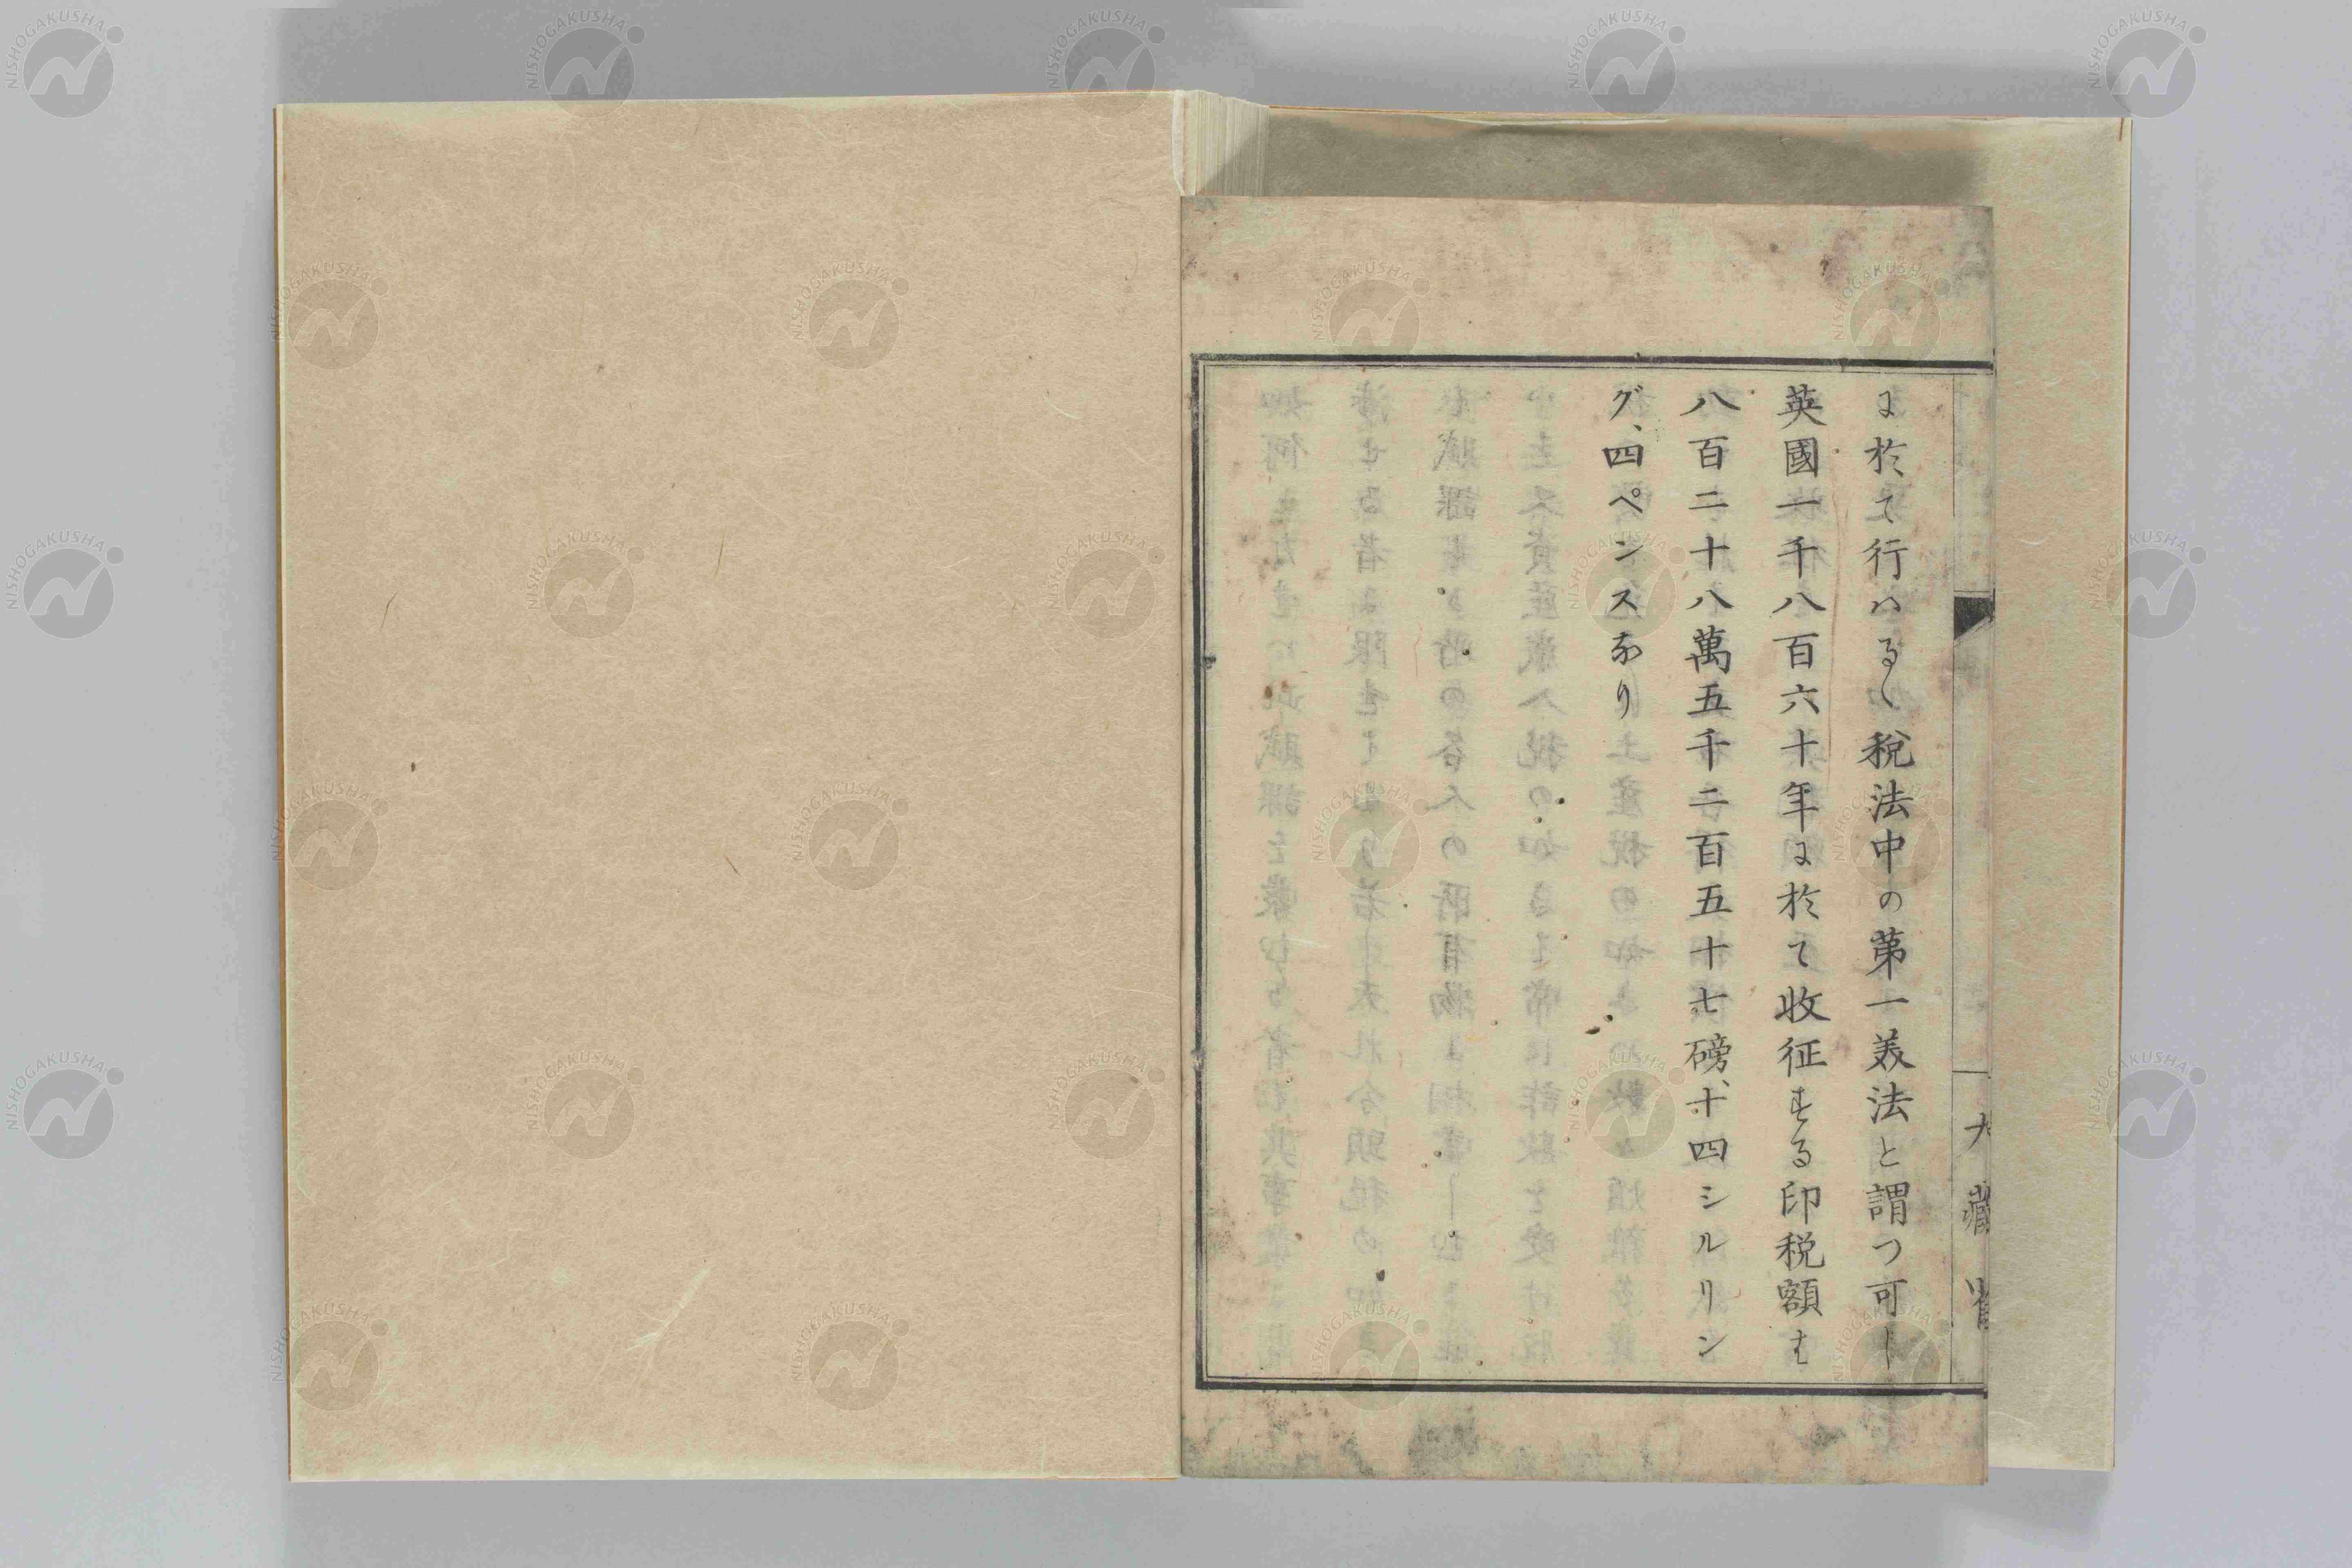 に於て行ハるゝ税法中の第一美法と謂つ可し
英國一千八百六十年に於て收征する印税額は
八百二十八萬五千二百五十七磅、十四シルリン
グ、四ペンスなり
大藏省
NISHOGAKUSHA